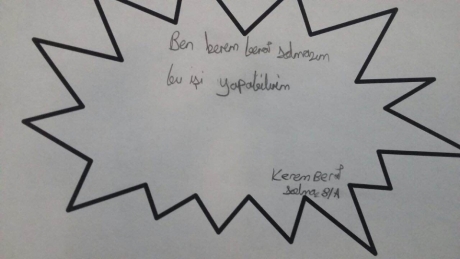 Ben kerem beral solmazım
bu işi yapabilirim
Kerem Beral
Solmaz 8/A